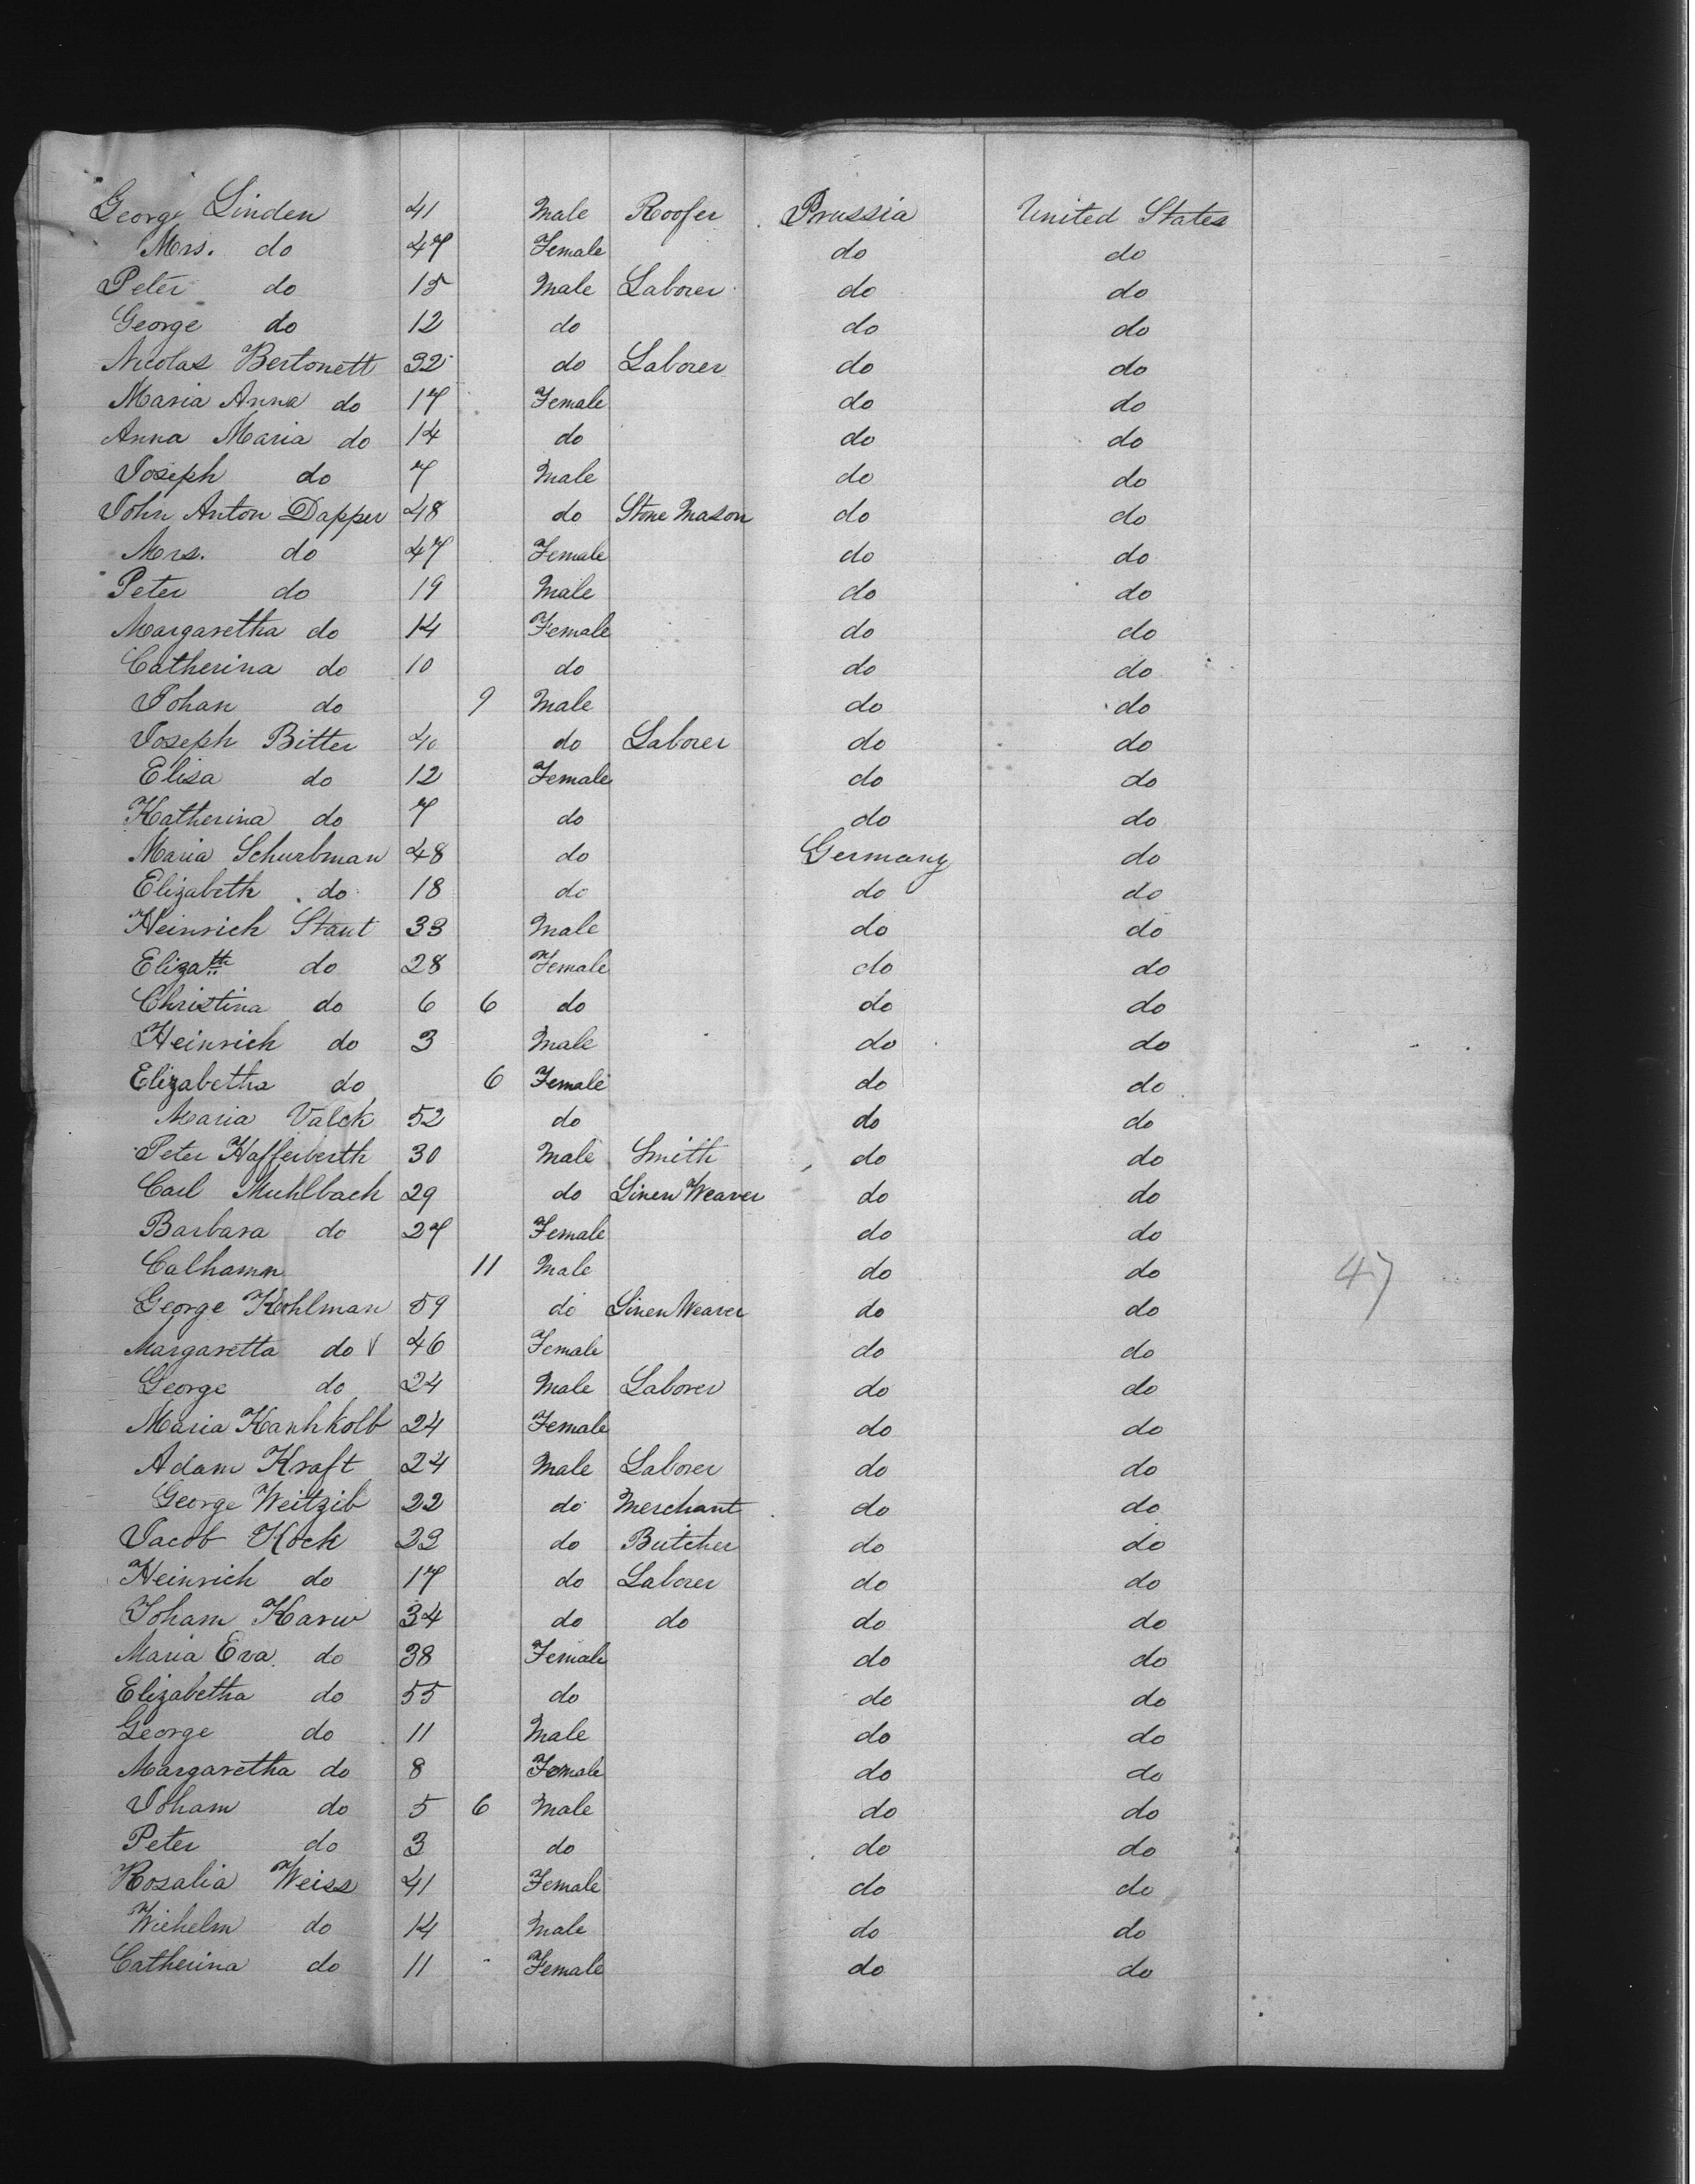 George Linden 41 Male Roofer Prussia United States
Mrs. do 47 Female do do
Peter do 15 Male Laborer do do
George do 12 do do do
Nicolas Bertonett 32 do Laborer do do
Maria Anna do 17 Female do do
Anna Maria do 14 do do do
Joseph do 7 Male do do
John Anton Dapper 48 do Stone Mason do do
Mrs. do 47 Female do do
Peter do 19 Male do do
Margaretha do 14 Female do do
Catherina do 10 do do do
Johan do 9 Male do do
Joseph Bitter 40 do Laborer do do
Elisa do 12 Female do do
Katherina do 7 do do do
Maria Schurbman 48 do Germany do
Elizabeth do 18 do do do
Heinrich Staut 33 Male do do
Elizath do 28 Female do do
Christina do 6 6 do do do
Heinrich do 3 Male do do
Elizabetha do 6 Female do do
Maria Valck 52 do do do
Peter Hafferberth 30 Male Smith do do
Carl Muhlbach 29 do Linen Weaver do do
Barbara do 27 Female do do
Calhamn 11 Male do do 47
George Kohlman 59 do Linen Weaver do do
Margaretta do 46 Female do do
George do 24 Male Laborer do do
Maria Kanhkolb 24 Female do do
Adam Kraft 24 Male Laborer do do
George Weitzib 22 do Merchant do do
Jacob Kock 23 do Butcher do do
Heinrich do 17 do Laborer do do
Joham Karw 34 do do do do
Maria Eva do 38 Female do do
Elizabetha do 55 do do do
George do 11 Male do do
Margaretha do 8 Female do do
Joham do 5 6 Male do do
Peter do 3 do do do
Rosalia Weiss 41 Female do do
Wiehelm do 14 Male do do
Catherina do 11 Female do do